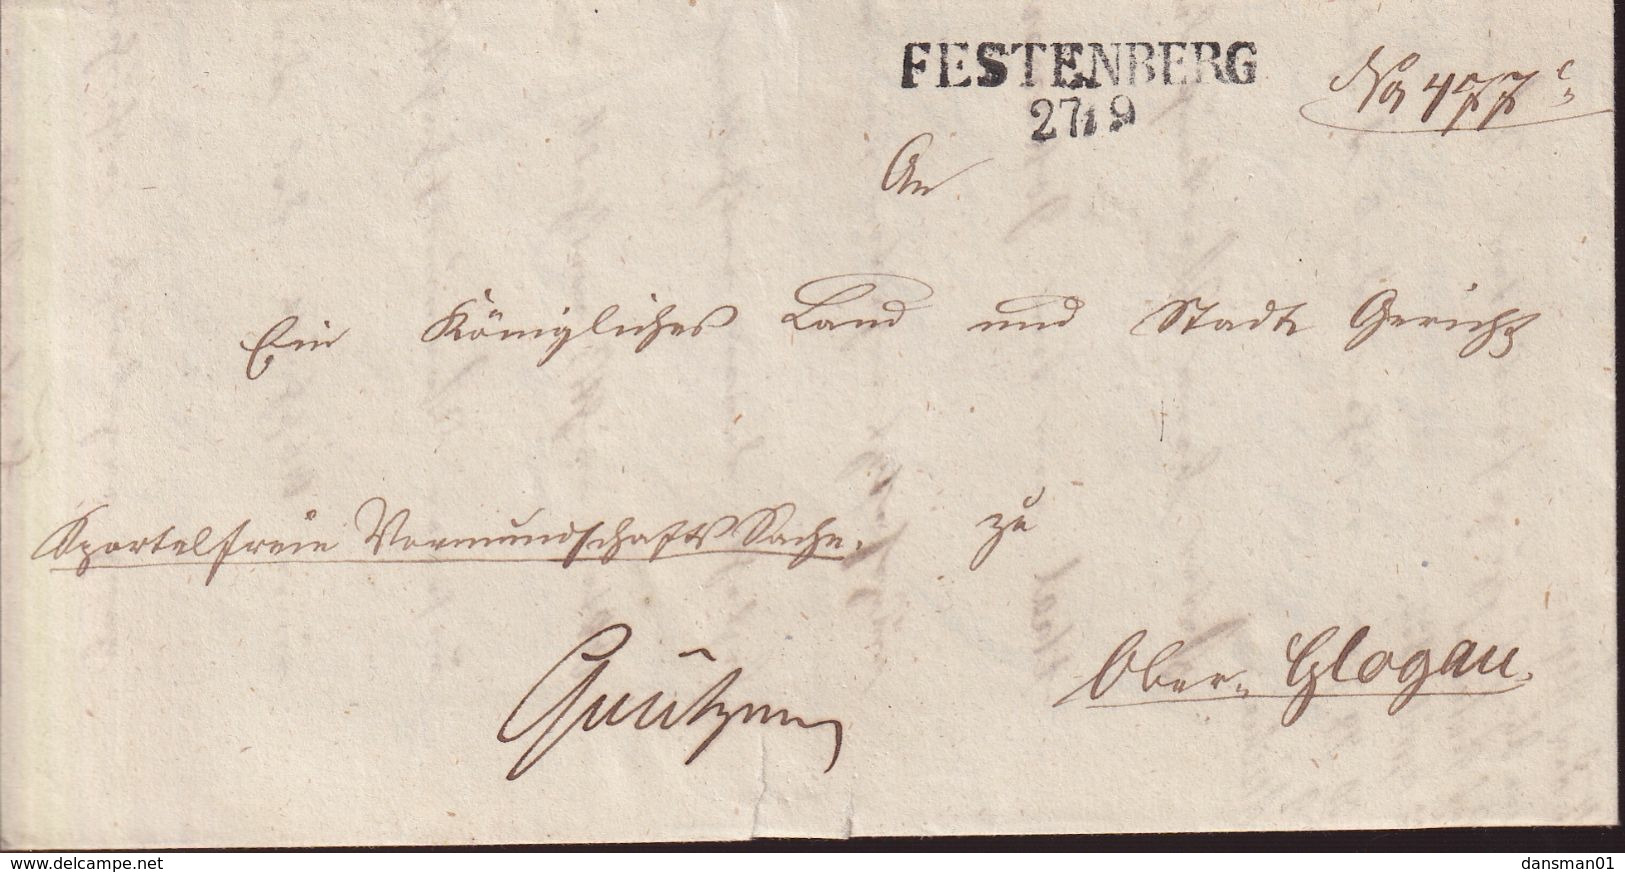 FESTENBERG
27/9
No 477 c
An
Ein Königliches Land und Stadt Gericht
zu
Sportelfreie Vormundschafts Sache.
Ober-Glogau.
www.delcampe.net
dansman01